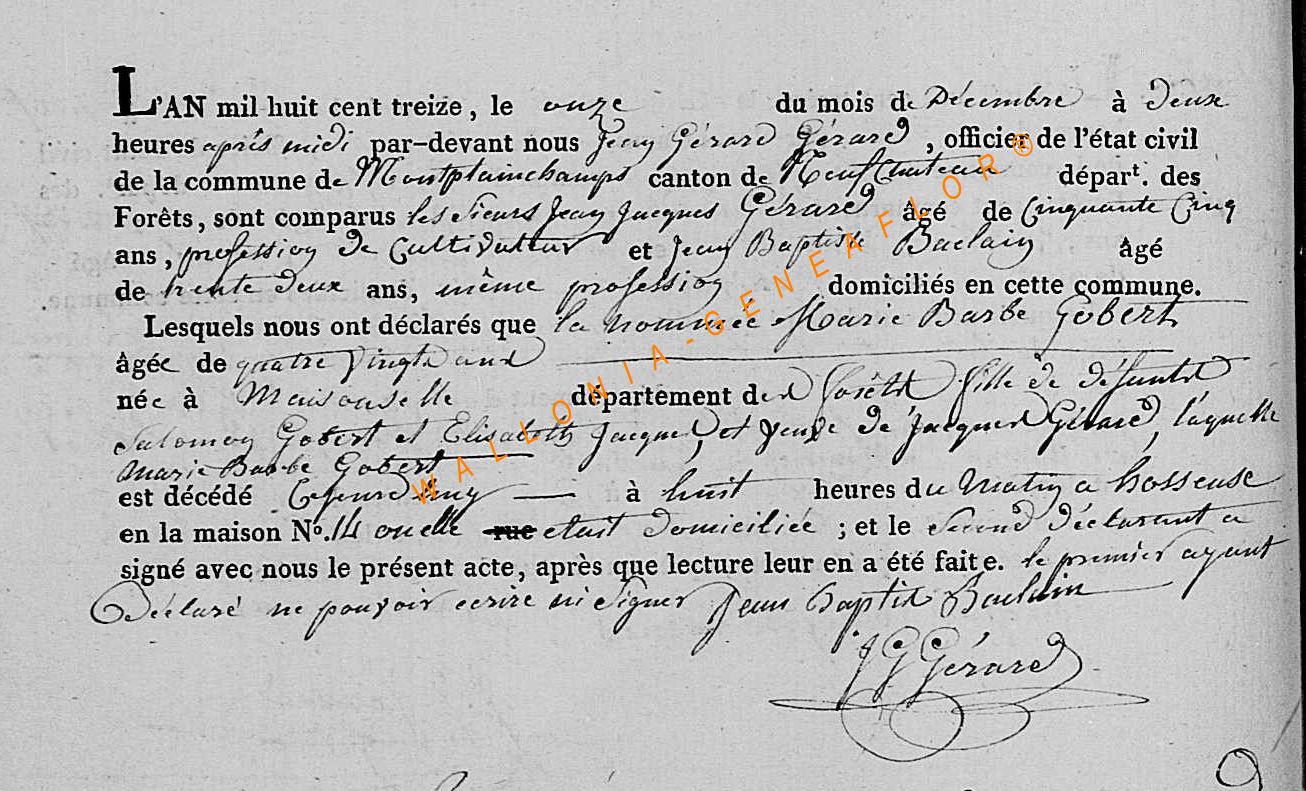 L'AN mil huit cent treize, le onze du mois de Décembre à deux
heures après midi par-devant nous Jean Gérard Gérard, officier de l'état civil
de la commune de Montplainchamps canton de Neufchateau départ. des
Forêts, sont comparus les Sieurs Jean Jacques Gérard âgé de Cinquante Cinq
ans, profession de Cultivateur et Jean Baptiste Baclain âgé
de trente deux ans, même profession domiciliés en cette commune.
Lesquels nous ont déclarés que la nommée Marie Barbe Gobert
âgée de quatre vingts ans
née à Maisoncelle département des forêts fille de défunts
Salomon Gobert et Elisabeth Jacques, et veuve de Jacques Gérard, laquelle
Marie Barbe Gobert
est décédé cejourd'huy à huit heures du Matin a hosseuse
en la maison No. 14 ou elle rue etait domiciliée ; et le second déclarant a
signé avec nous le présent acte, après que lecture leur en a été faite. le premier ayant
Déclaré ne pouvoir ecrire ni signer Jean Baptist Baclain
J G Gérard
WALLONIA-GENEAFLOR®